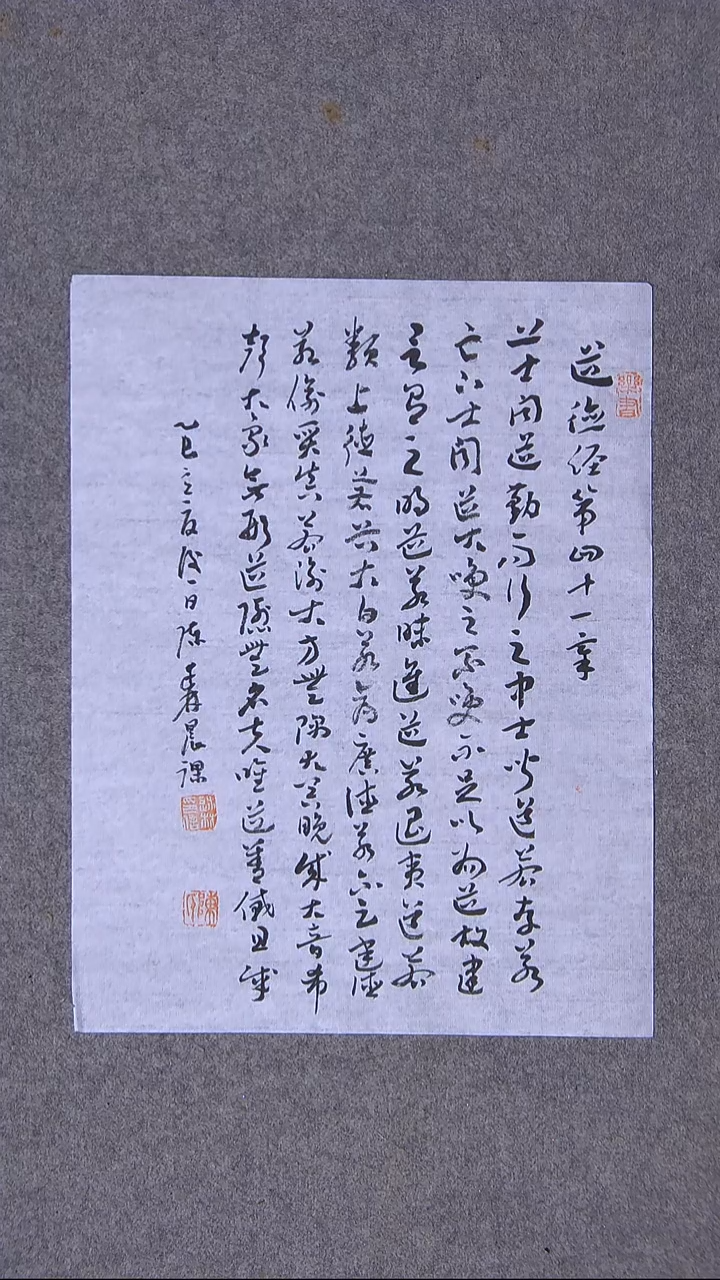 道德經第四十一章
上士聞道勤而行之中士聞道若存若
亡下士聞道大笑之不笑不足以為道故建
言有之明道若昧進道若退夷道若
類上德若谷大白若辱廣德若不足建德
若偷質真若渝大方無隅大器晚成大音希
聲大象無形道隱無名夫唯道善貸且成
乙巳立夏後一日陳晨課